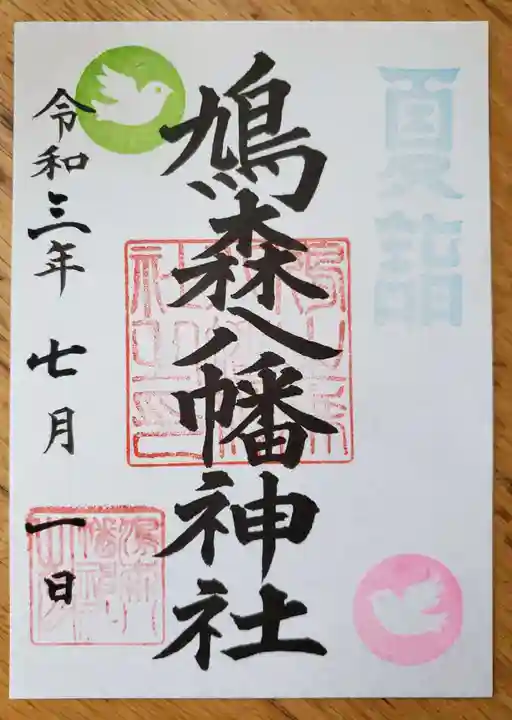 夏詣
鳩森八幡神社
令和三年 七月 一日